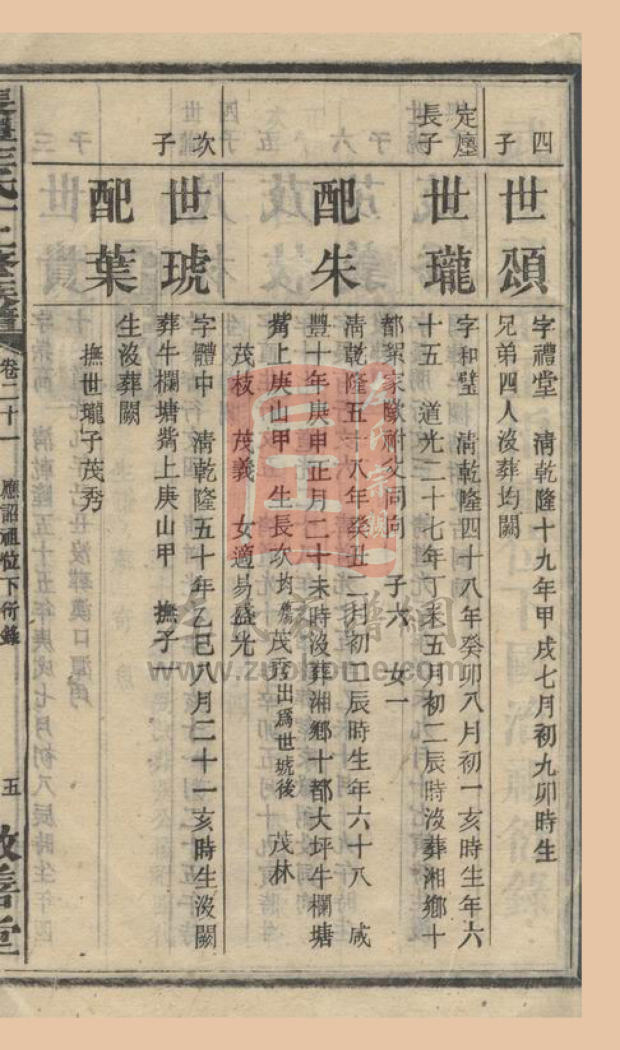 四子
世頌
字禮堂　清乾隆十九年甲戌七月初九卯時生
兄弟四人沒葬均闕
定廛長子
世瓏
字和璧　清乾隆四十八年癸卯八月初一亥時生年六
十五　道光二十七年丁未五月初二辰時沒葬湘鄉十
都絮家歐祔父同向　子六　女一
配朱
清乾隆五十八年癸丑二月初二辰時生年六十八　咸
豐十年庚申正月二十未時沒葬湘鄉十都大坪牛欄塘
觜上庚山甲　生長次均殤茂秀出爲世琥後　茂林
茂枝　茂義　女適易盛光
次子
世琥
字體中　清乾隆五十年乙巳八月二十一亥時生沒闕
葬牛欄塘觜上庚山甲　撫子一
配葉
生沒葬闕
撫世瓏子茂秀
卷二十一　應詔祖位下衍錄　五
www.zuojiome.com